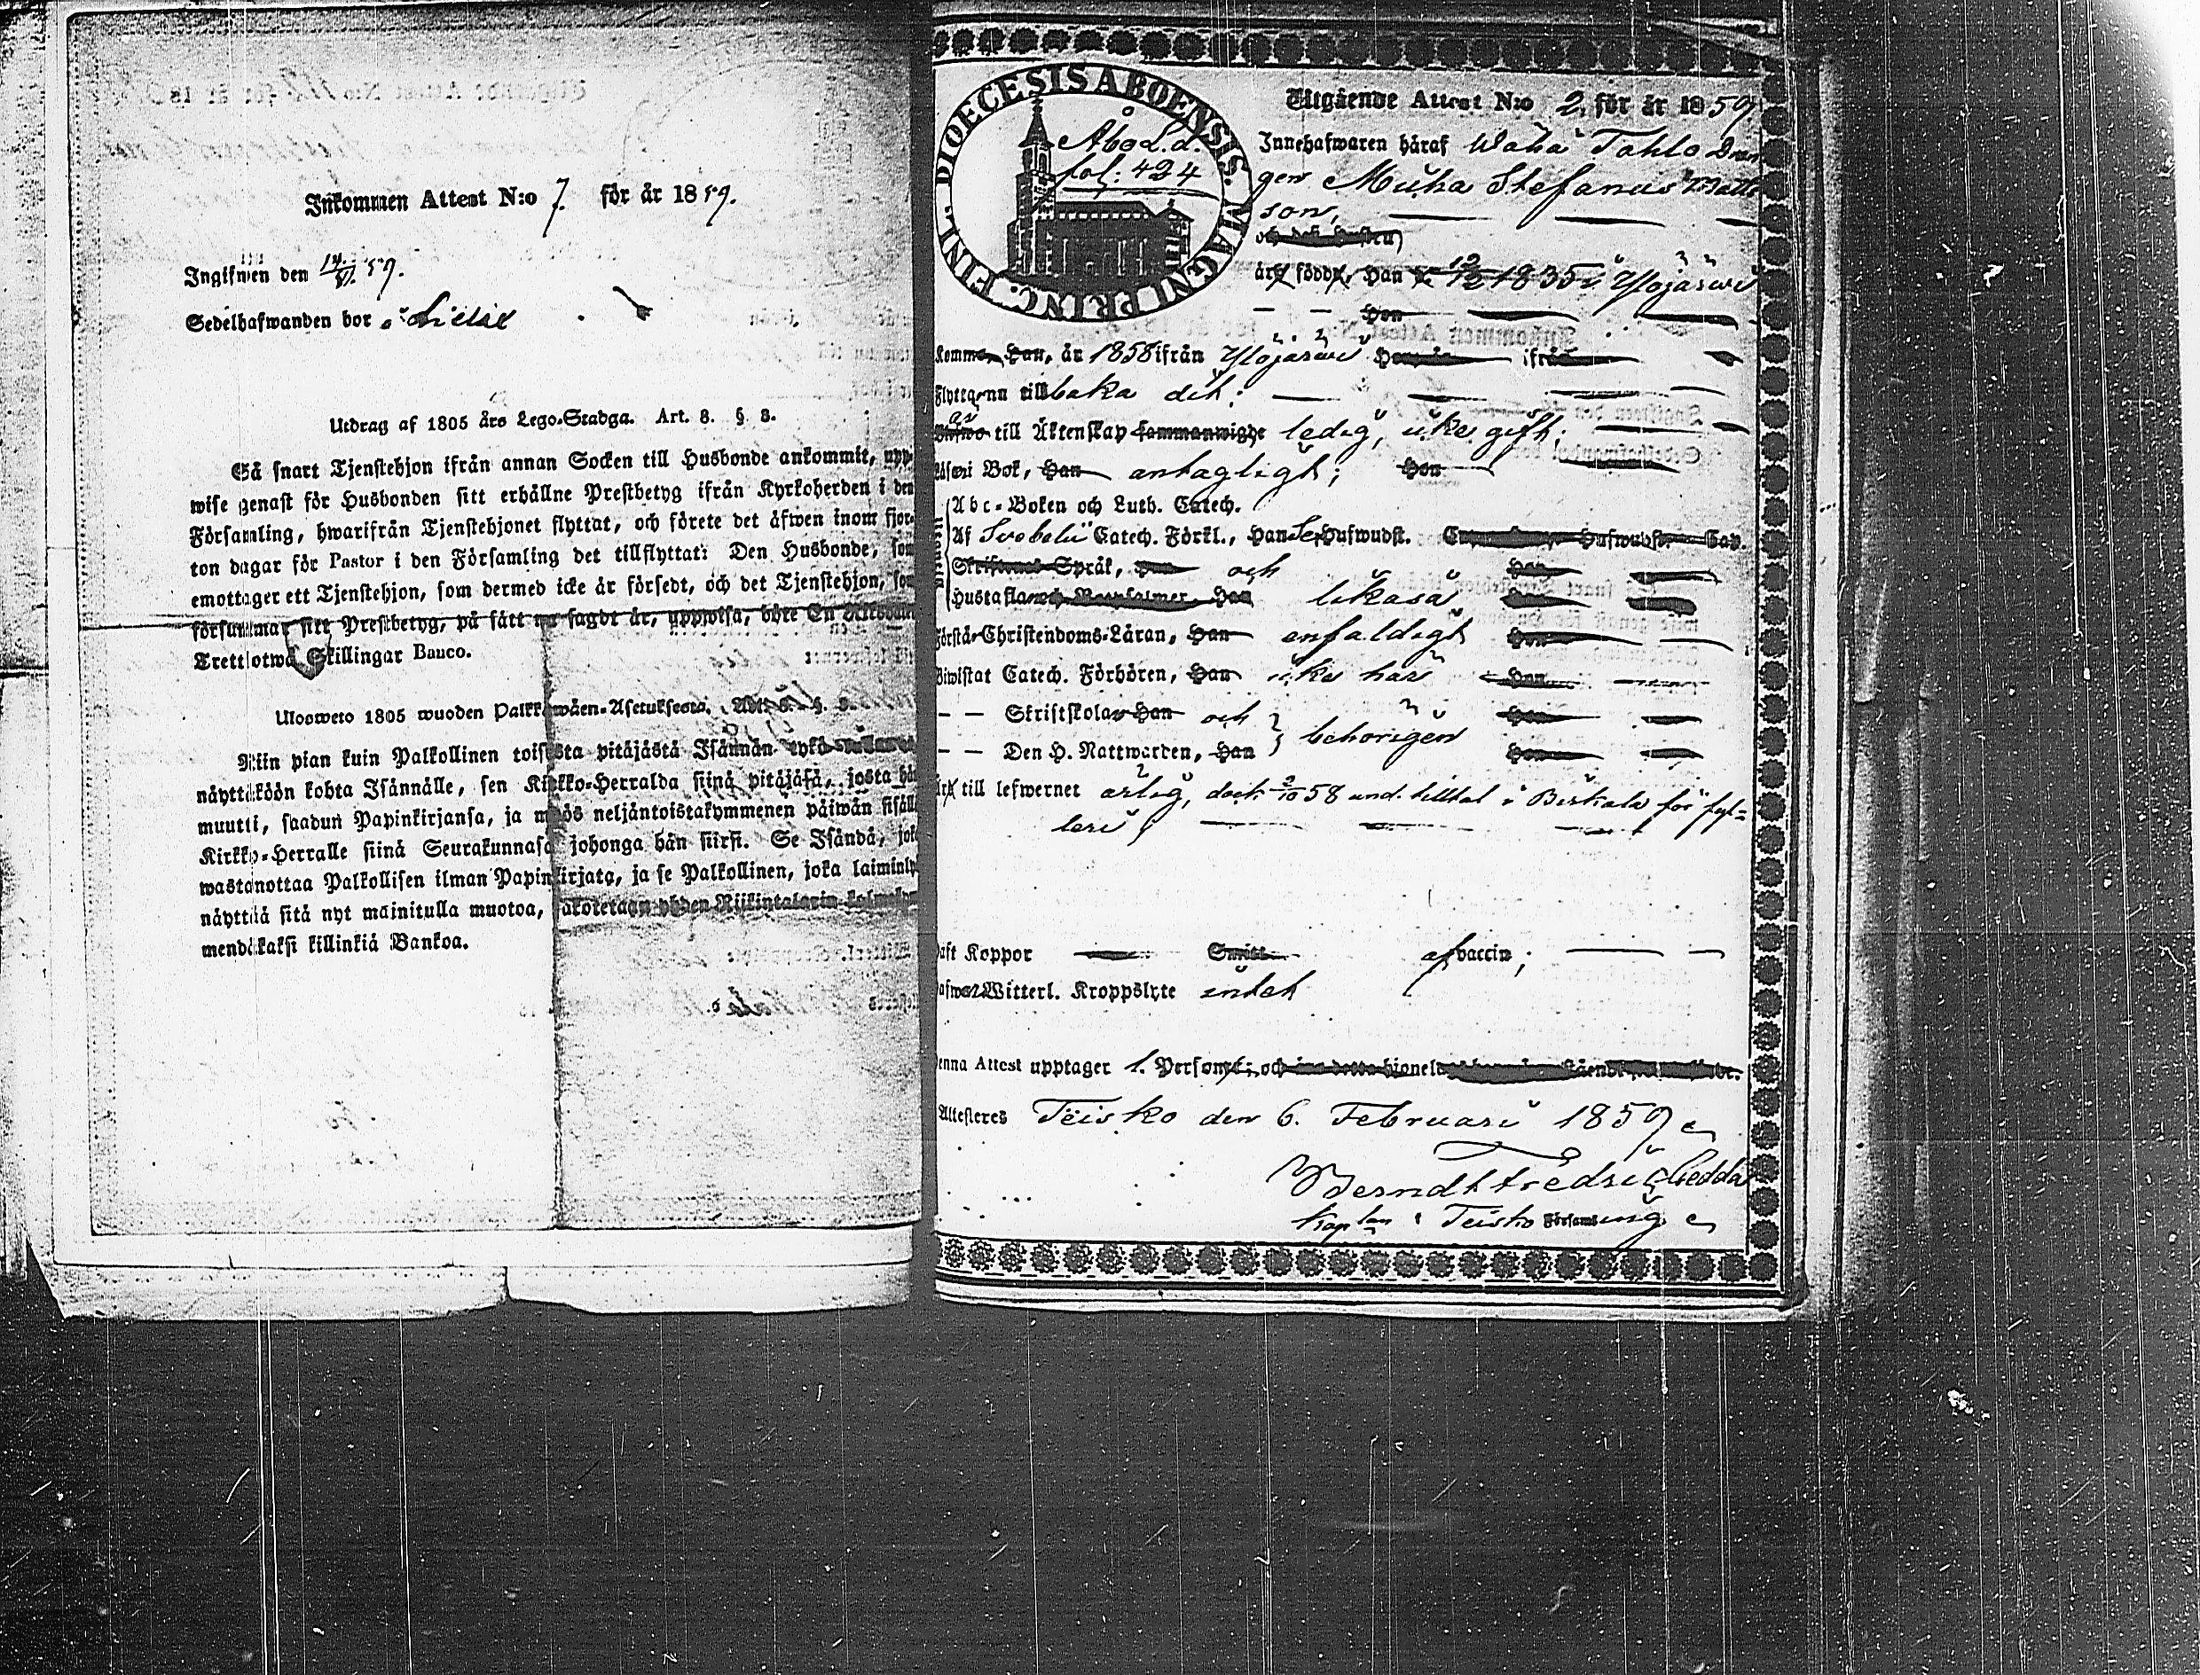 Inkommen Attest N:o 7. för år 1859.
Ingifwen den 14/VI 59.
Sedelhafwanden bor i
Utdrag af 1805 års Lego-Stadga. Art. 8. § 8.
Så snart Tjenstehjon ifrån annan Socken till Husbonde ankommit, upp-
wise genast för Husbonden sitt erhållne Prestbetyg ifrån Kyrkoherden i den
Församling, hwarifrån Tjenstehjonet flyttat, och förete det äfwen inom fjor-
ton dagar för Pastor i den Församling det tillflyttat: Den Husbonde, som
emottager ett Tjenstehjon, som dermed icke är försedt, och det Tjenstehjon, som
försummar sitt Prestbetyg, på sätt nu sagdt är, uppwisa, böte En
Trettiotwå Skillingar Banco.
Ulosweto 1805 wuoden Palkkawäen-Asetuksesta. Art. 8. §. 8.
Niin pian kuin Palkollinen toisesta pitäjästä Isännän tykö
näyttäköön kohta Isännälle, sen Kirkko-Herralda siinä pitäjäsä, josta hän
muutti, saadun Papinkirjansa, ja myös neljäntoistakymmenen päiwän sisällä
Kirkko-Herralle siinä Seurakunnasa johonga hän siirsi. Se Isändä, joka
wastanottaa Palkollisen ilman Papinkirjata, ja se Palkollinen, joka laiminlyö
näyttää sitä nyt mainitulla muotoa, sakotetaan yhden Riikintalarin kolmekym-
mendäkaksi killinkiä Bankoa.
DIOECESIS ABOENSIS. MAGNI PRINC. FINL.
Åbo L.d.
fol: 424
Utgående Attest N:o 2, för år 1859
Innehafwaren häraf Wäha Tohlo Dren
gen Muha Stefanus Matts
son,
och dess Hustru
är född, Han 12/12 1835 i Ylöjärwi
Hon
Komma, Han, år 1858 ifrån Ylöjärwi ifrån
Flyttar nu tillbaka dit;
är
till Äktenskap sammanwigde ledig, icke gift;
Läser i Bok, Han antagligt; Hon
Abc-Boken och Luth. Catech.
Af Svebelii Catech. Förkl., Han Hufwudst. Hufwudst.
Skriftenes Språk, och Hon
Hustaflan likaså
Förstår Christendoms-Läran, Han enfaldigt
Biwistat Catech. Förhören, Han icke här Hon
Skriftskolan Han och
Den H. Nattwarden, Han behörigen
Är till lefwernet ärlig, dock 2/10 58 und. tilltal i Birkala för fyl-
leri;
Haft Koppor af vaccin;
Witterl. Kroppslyte intet
Denna Attest upptager 1. Person;
Attesteres Teisko den 6. Februari 1859
Berndt Fredric Gedda
Kaplan i Teisko Församling